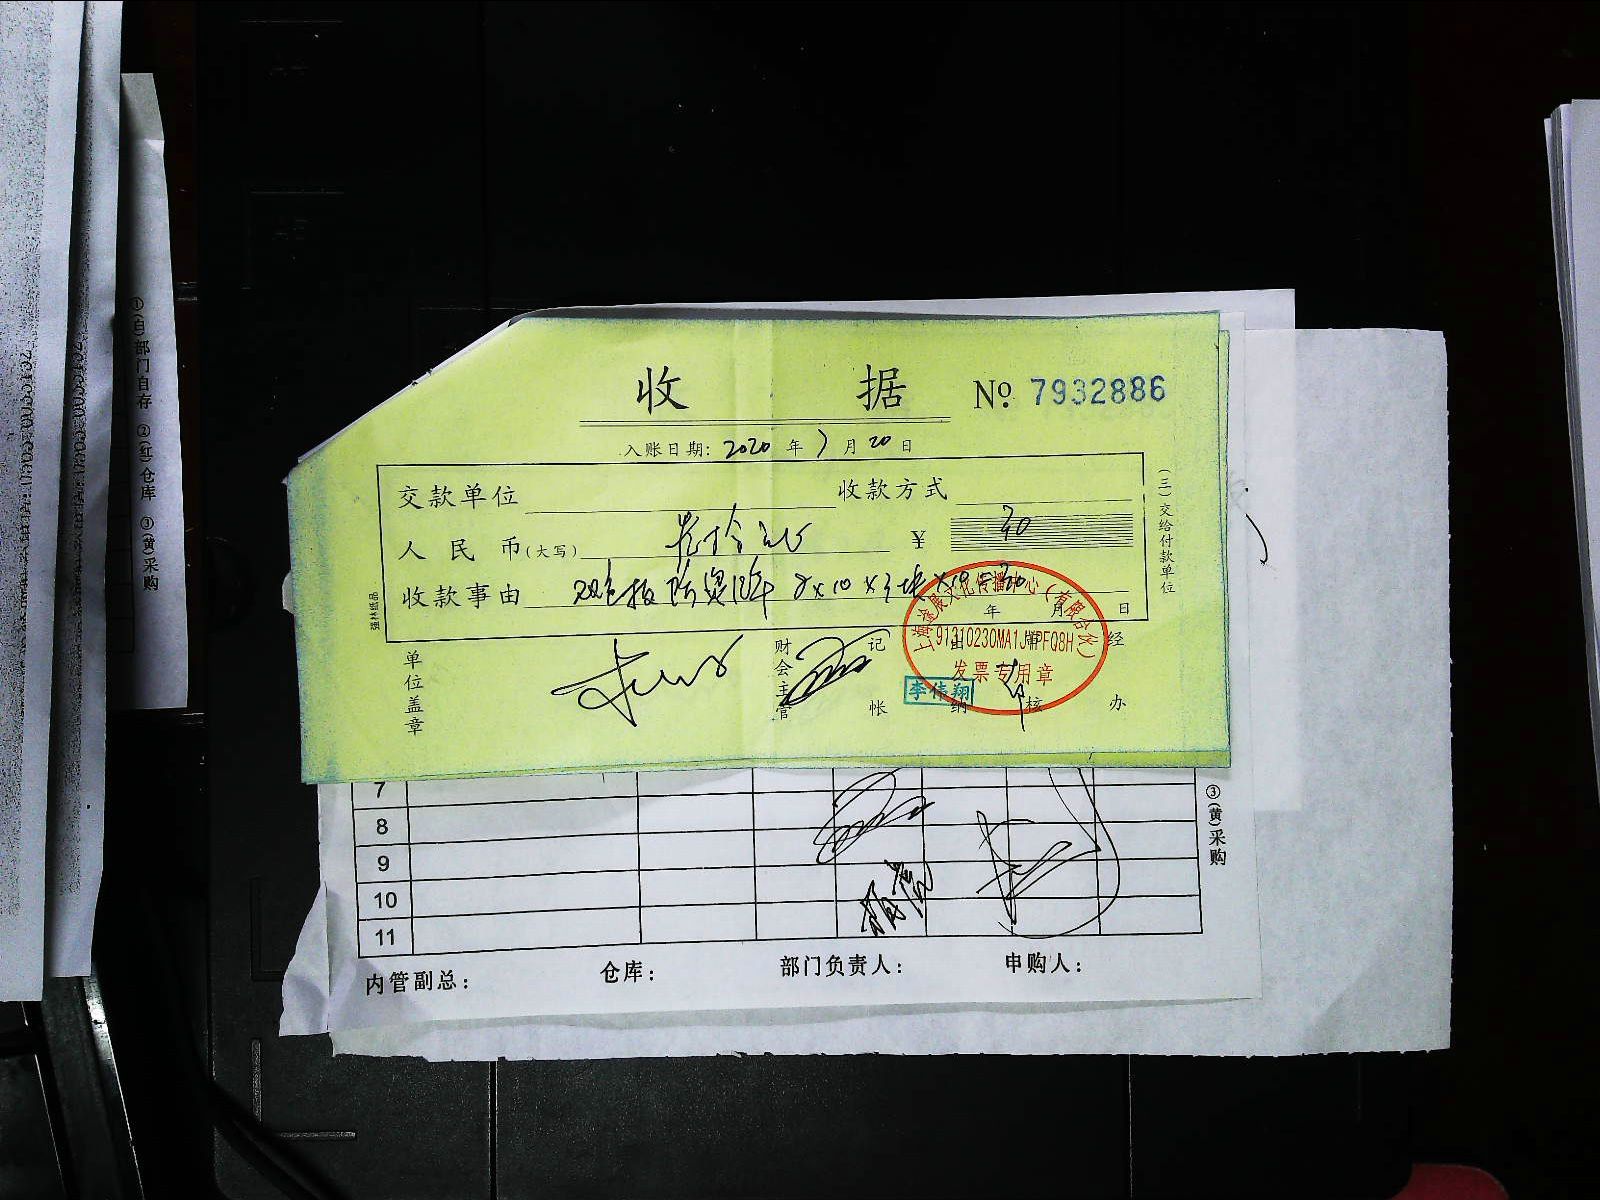 收 据 No. 7932886
入账日期: 2020 年 7 月 20 日
交款单位 收款方式
人民币(大写) 叁拾元 ¥ 30
收款事由 双色板 8×10×3块×10=30
(三)交给付款单位
強林紙品
年 月 日
单位盖章 财会主管 记帐 出纳 审核 经办
上海金展文化传播中心(有限合伙)
91310230MA1JNPFQ8H
发票专用章
李伟翔
7
8
9
10
11
③(黄)采购
内管副总: 仓库: 部门负责人: 申购人:
①(白)部门自存 ②(红)仓库 ③(黄)采购